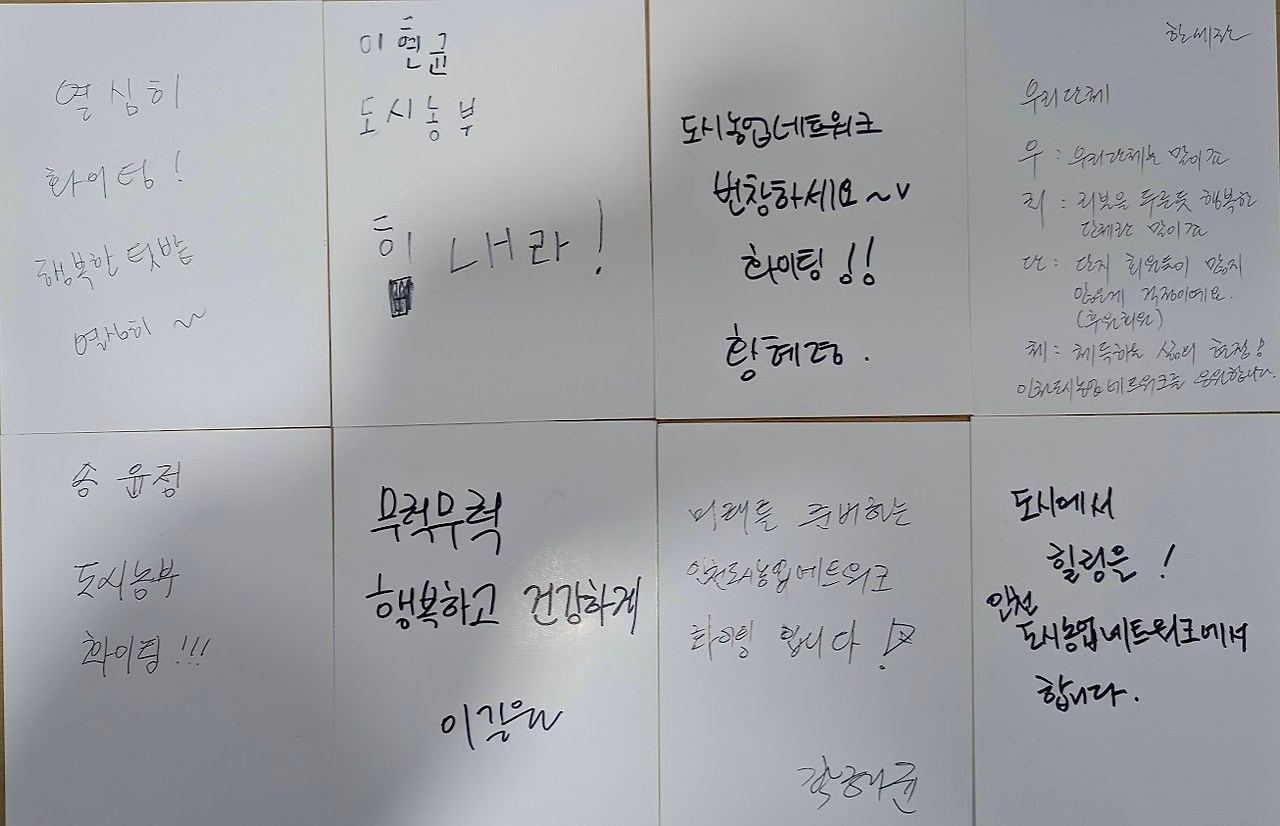 열심히
화이팅!
행복한 텃밭
열심히~
이현균
도시농부
힘 내라!
도시농업네트워크
번창하세요~v
화이팅!!
황혜경.
우리단체
우: 우리단체는 말이죠
리: 리본을 두른듯 행복한
단체란 말이죠
단: 단지 회원들이 많지
않은게 걱정이예요.
(후원회원)
체: 체득하는 삶의 현장!
인천도시농업네트워크를 응원합니다.
송윤정
도시농부
화이팅!!!
무럭무럭
행복하고 건강하게
이길원
미래를 준비하는
인천도시농업네트워크
화이팅 합니다!
도시에서
힐링을!
인천
도시농업네트워크에서
합니다.